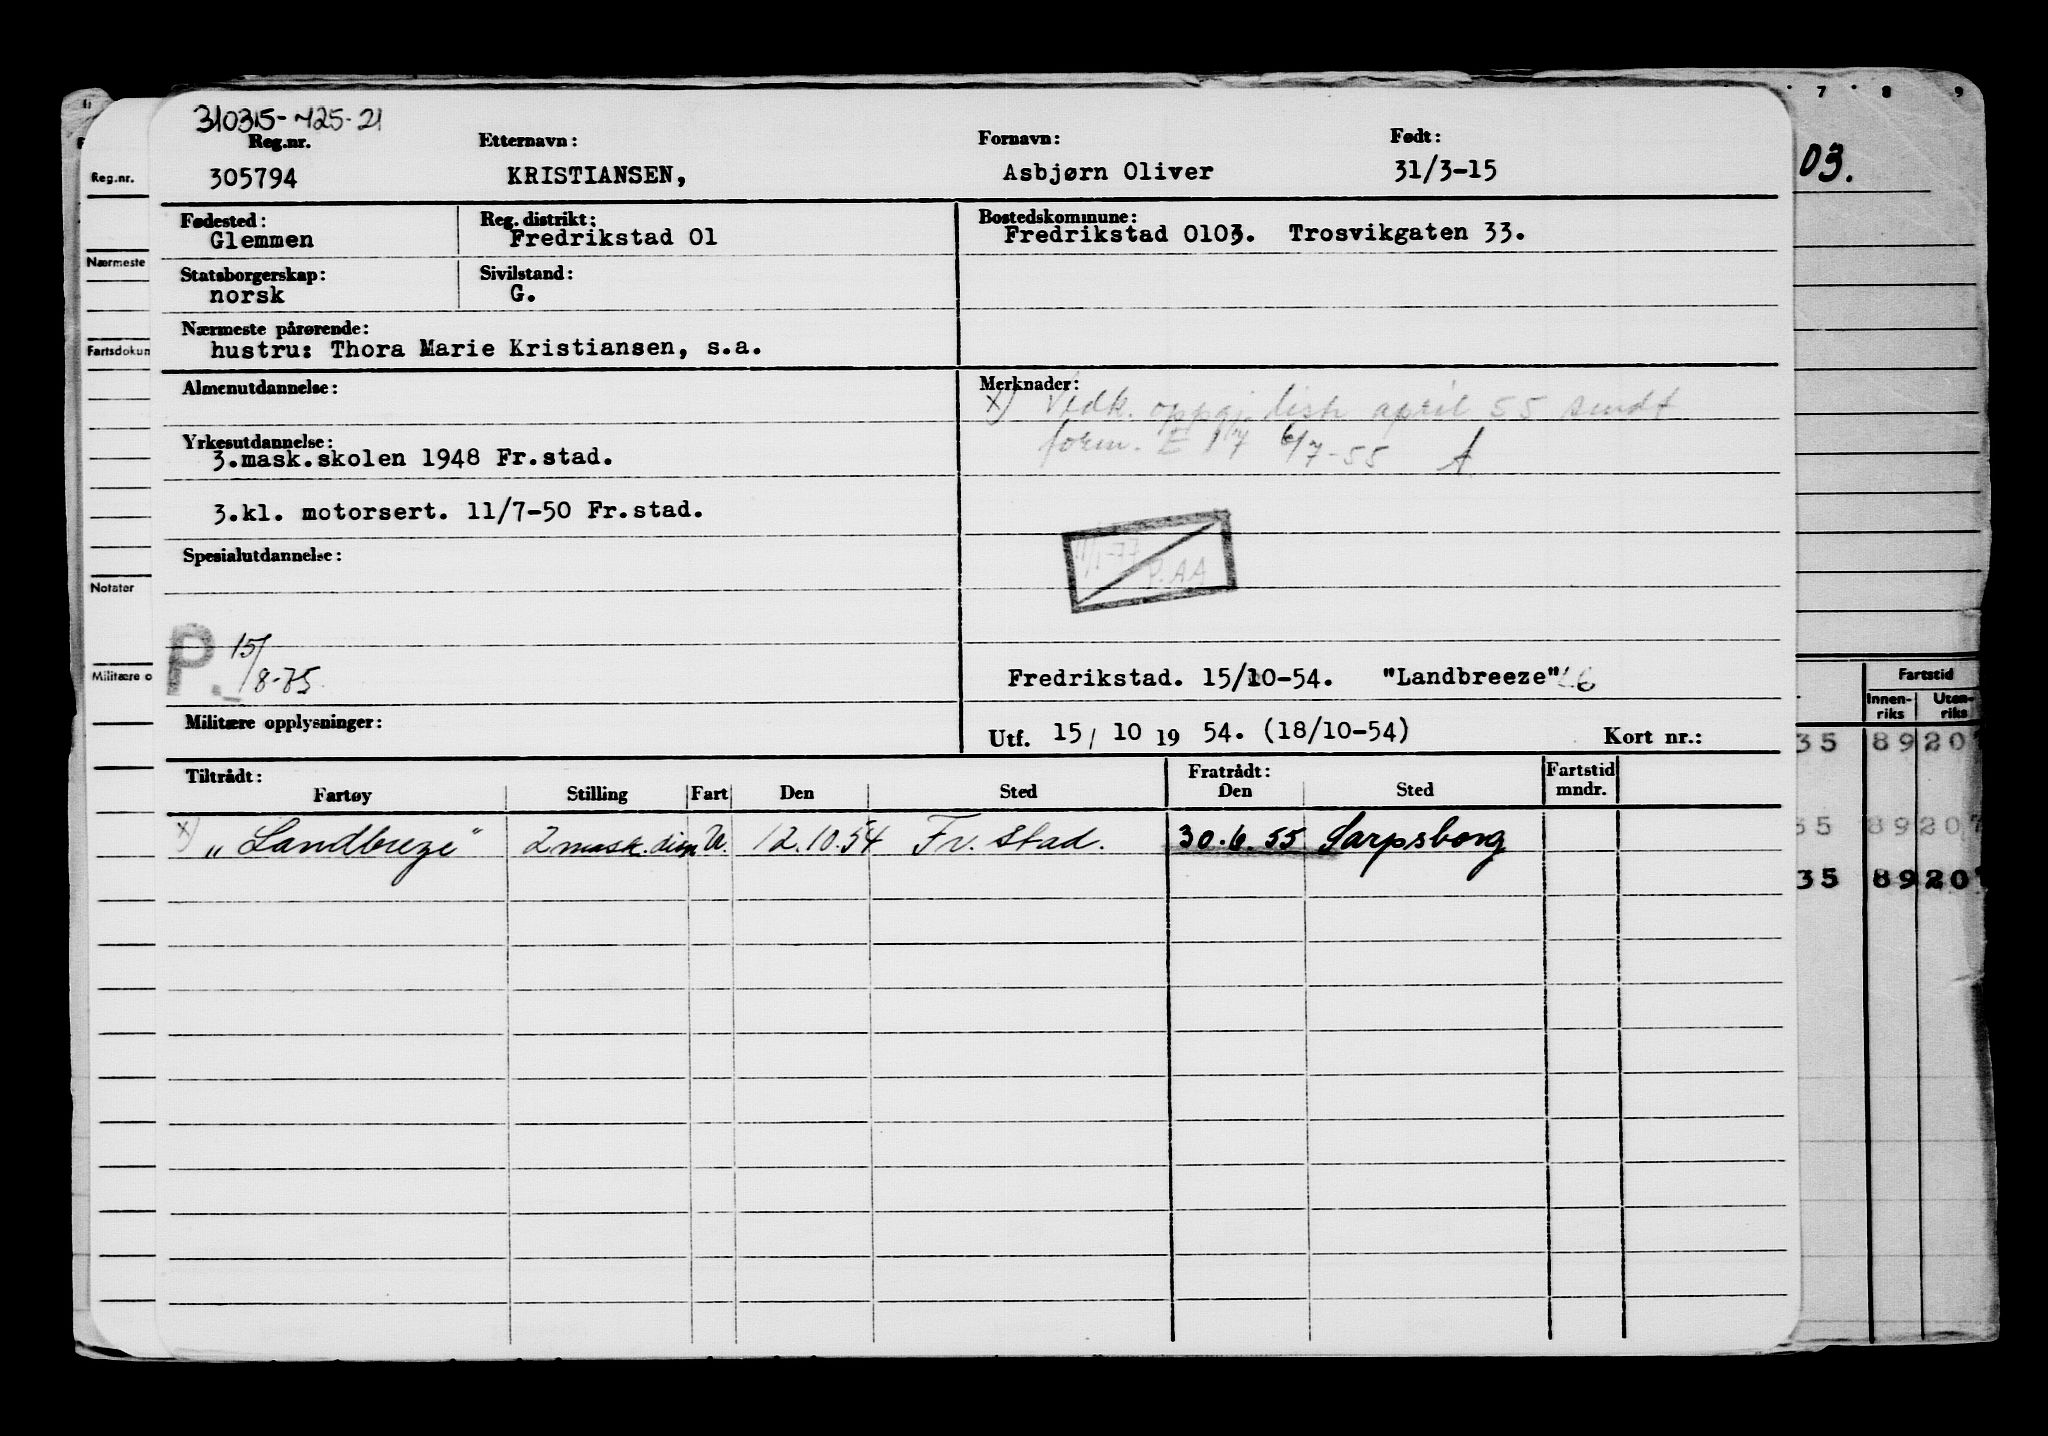 310315-425-21
Reg.nr. Etternavn: Fornavn: Født:
305794 KRISTIANSEN, Asbjørn Oliver 31/3-15
Fødested: Reg. distrikt: Bostedskommune:
Glemmen Fredrikstad 01 Fredrikstad 0103. Trosvikgaten 33.
Statsborgerskap: Sivilstand:
norsk G.
Nærmeste pårørende:
hustru: Thora Marie Kristiansen, s.a.
Almenutdannelse: Merknader:
x) Vedk. oppgj. disp april 55 sendt
form. E 17 6/7-55
Yrkesutdannelse:
3.mask.skolen 1948 Fr.stad.
3.kl. motorsert. 11/7-50 Fr.stad.
Spesialutdannelse:
1/1-77
P.AA
P. 15/8-75
Fredrikstad. 15/10-54. "Landbreeze"
Militære opplysninger:
Utf. 15/ 10 19 54. (18/10-54) Kort nr.:
Tiltrådt: Fratrådt: Fartstid
Fartøy Stilling Fart Den Sted Den Sted mndr.
x) „Landbreze" 2 mask. disp U. 12.10.54 Fr. stad. 30.6.55 Sarpsborg
Reg.nr.
Nærmeste
Fartsdokun
Notater
Militære o
7 8 9
03.
Fartstid
Innen- Uten-
riks riks
35 89 20
35 89 20
35 89 20